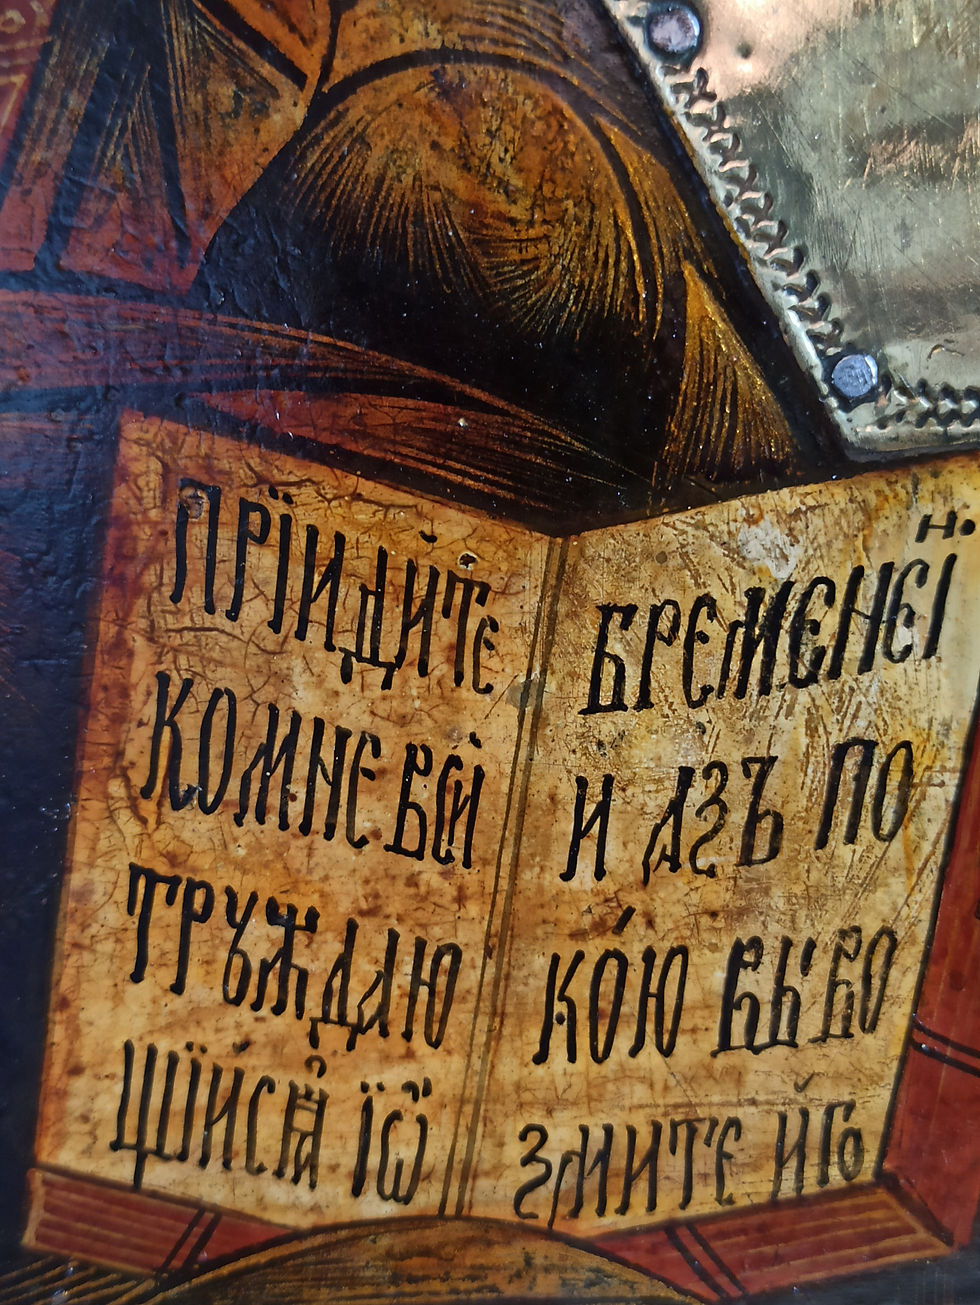 ПРЇИДИ́ТЕ
КОМНЕ ВСИ́
ТРУЖДАЮ
ЩЇЙСѦ Ї Ѡ
БРЕМЕНЕЇ
н.
И АЗЪ ПО
КО́Ю ВЫ ВО
ЗМИТЕ ИГО